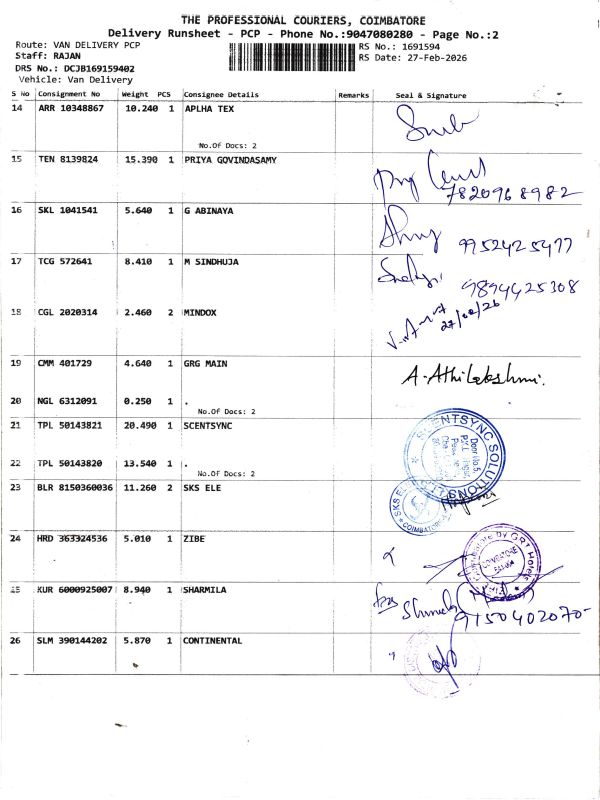 THE PROFESSIONAL COURIERS, COIMBATORE
Delivery Runsheet - PCP - Phone No.:9047080280 - Page No.:2
Route: VAN DELIVERY PCP
RS No.: 1691594
Staff: RAJAN
RS Date: 27-Feb-2026
DRS No.: DCJB169159402
Vehicle: Van Delivery
S No Consignment No Weight PCS Consignee Details Remarks Seal & Signature
14 ARR 10348867 10.240 1 APLHA TEX
No.Of Docs: 2
15 TEN 8139824 15.390 1 PRIYA GOVINDASAMY
7820968982
16 SKL 1041541 5.640 1 G ABINAYA
9952425477
17 TCG 572641 8.410 1 M SINDHUJA
9894425308
18 CGL 2020314 2.460 2 MINDOX
27/02/26
19 CMM 401729 4.640 1 GRG MAIN
A. Athilakshmi.
20 NGL 6312091 0.250 1 .
No.Of Docs: 2
21 TPL 50143821 20.490 1 SCENTSYNC
SCENTSYNC SOLUTIONS
Door No.5,
22 TPL 50143820 13.540 1 .
No.Of Docs: 2
23 BLR 8150360036 11.260 2 SKS ELE
SKS
COIMBATORE
24 HRD 363324536 5.010 1 ZIBE
by GRT Hotels
COIMBATORE
25 KUR 6000925007 8.940 1 SHARMILA
9150402070
26 SLM 390144202 5.870 1 CONTINENTAL